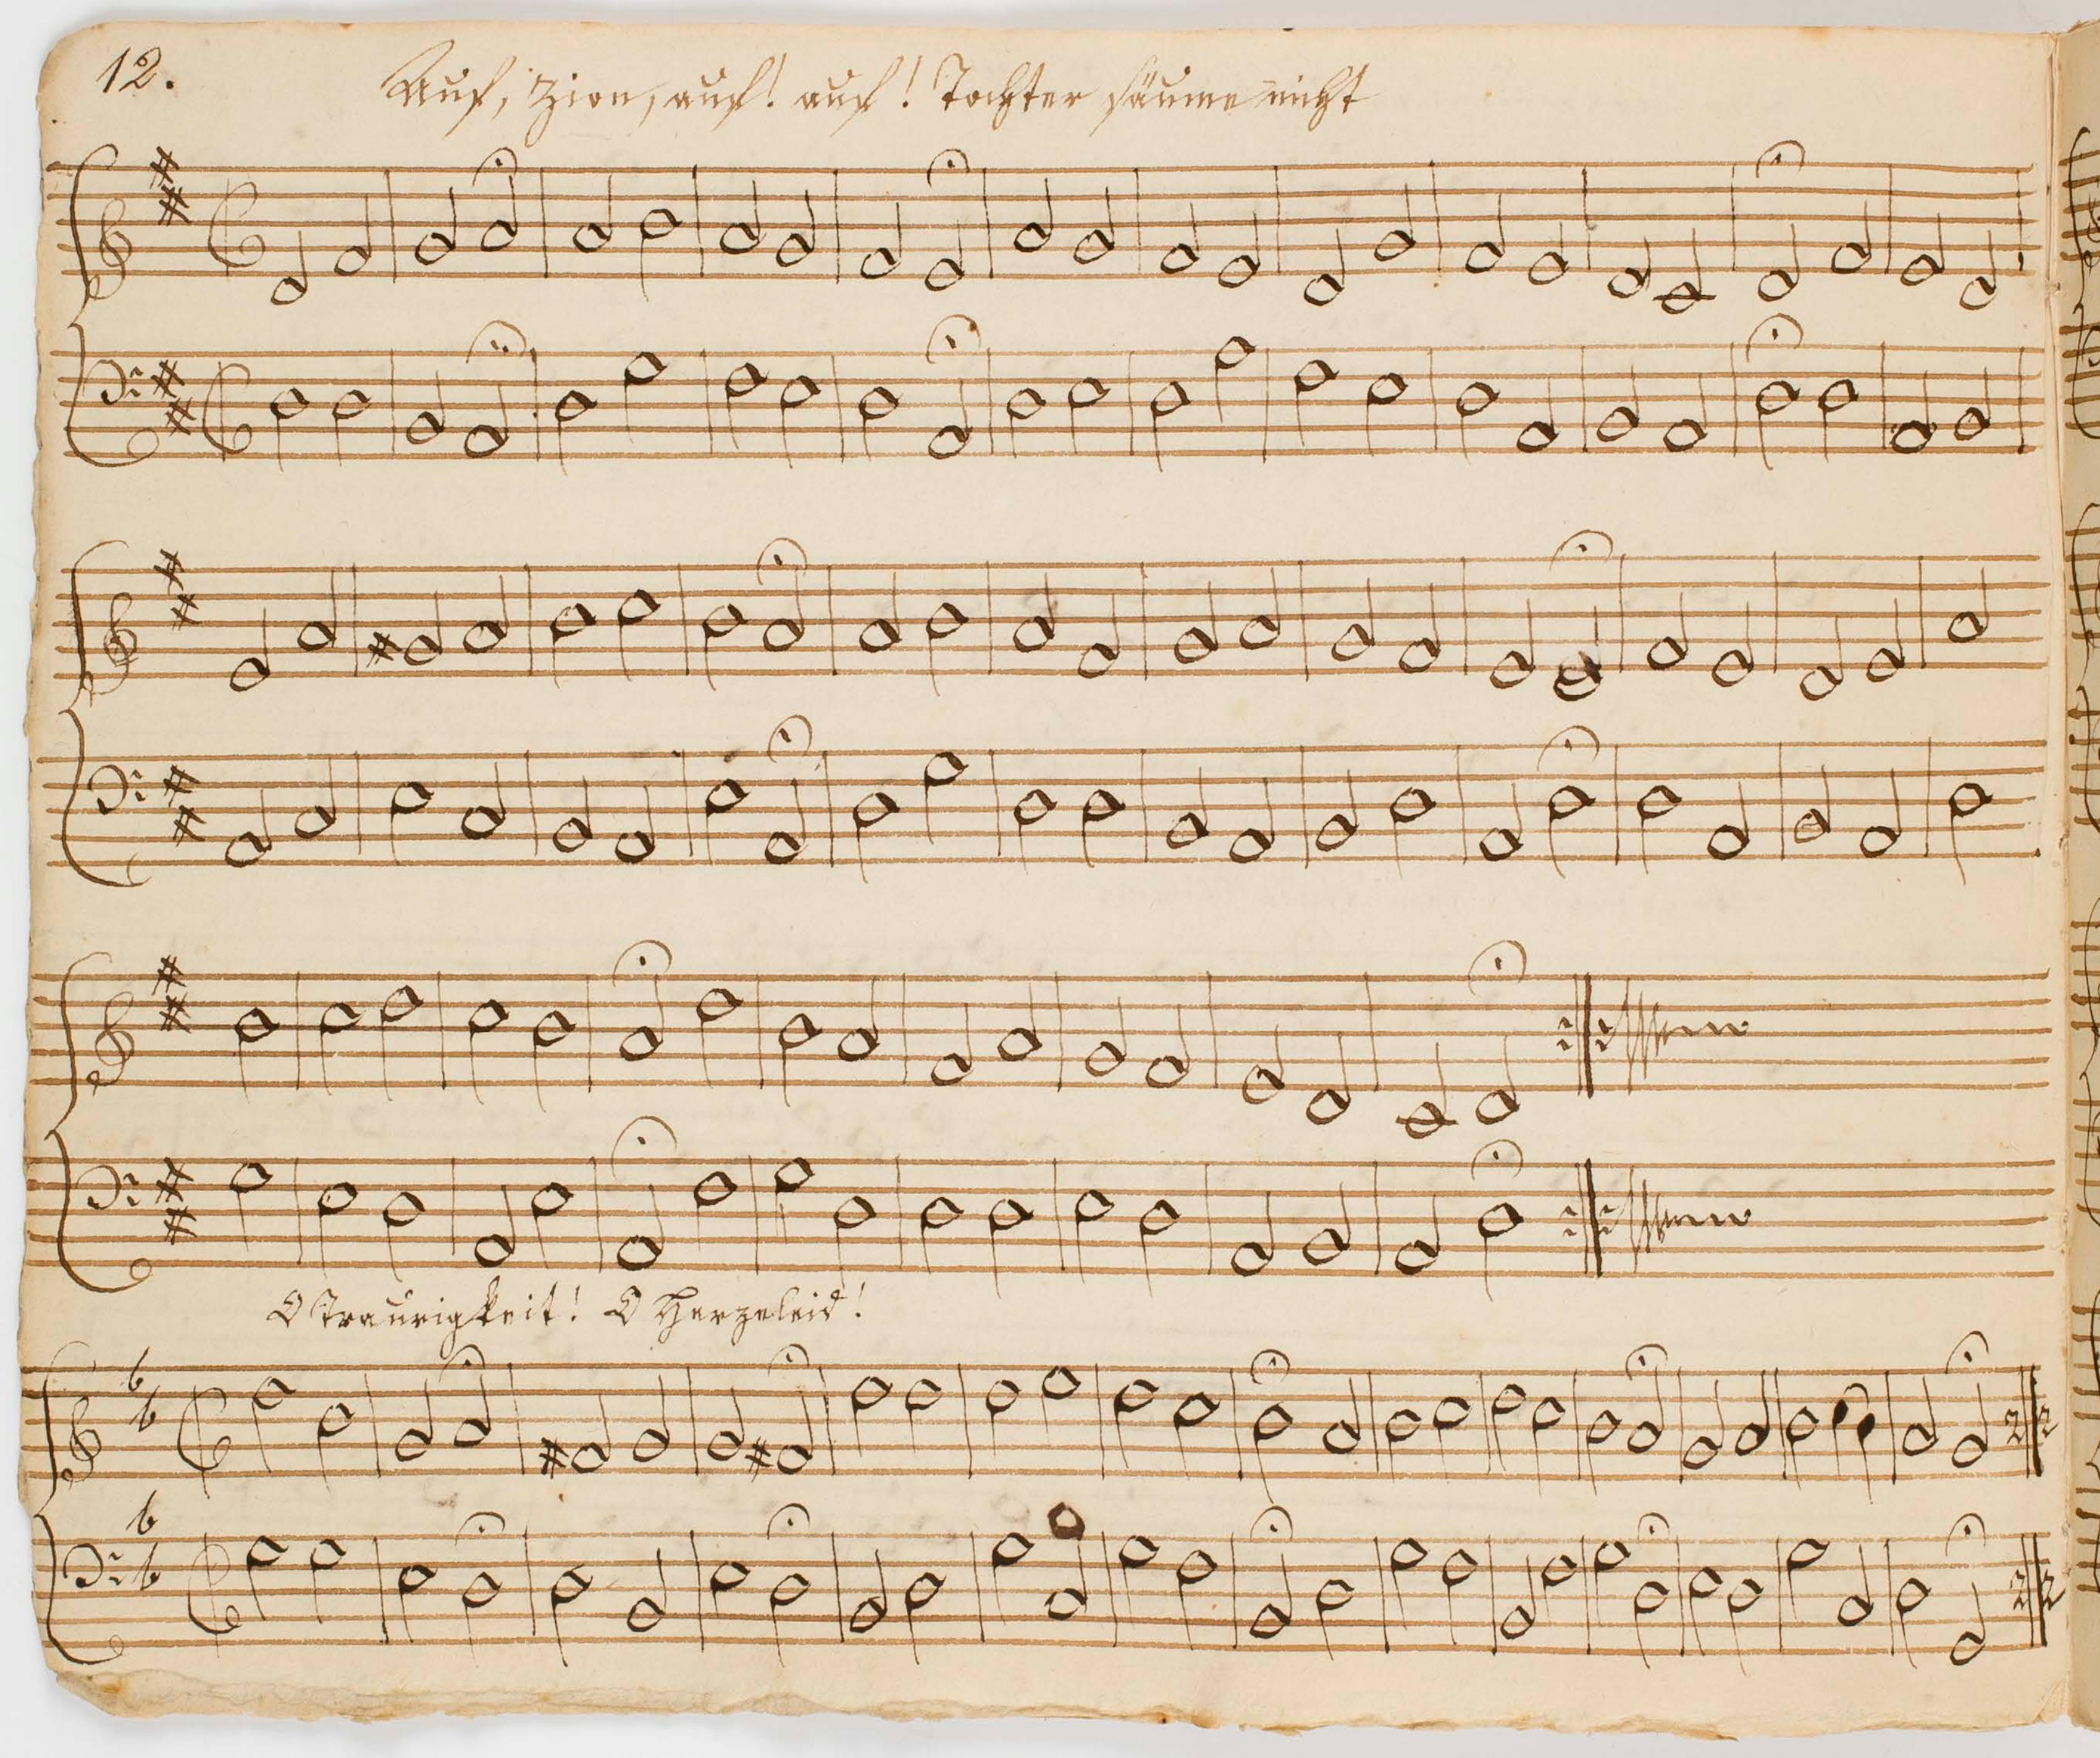 12.
Auf, Zion, auf! auf! Tochter säume nicht
O Traurigkeit! O Herzeleid!